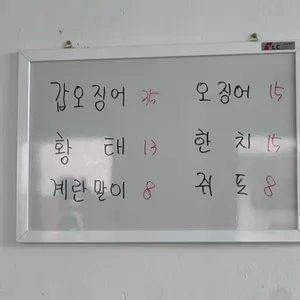 갑오징어 25 오징어 15
황태 13 한치 15
계란말이 8 쥐포 8